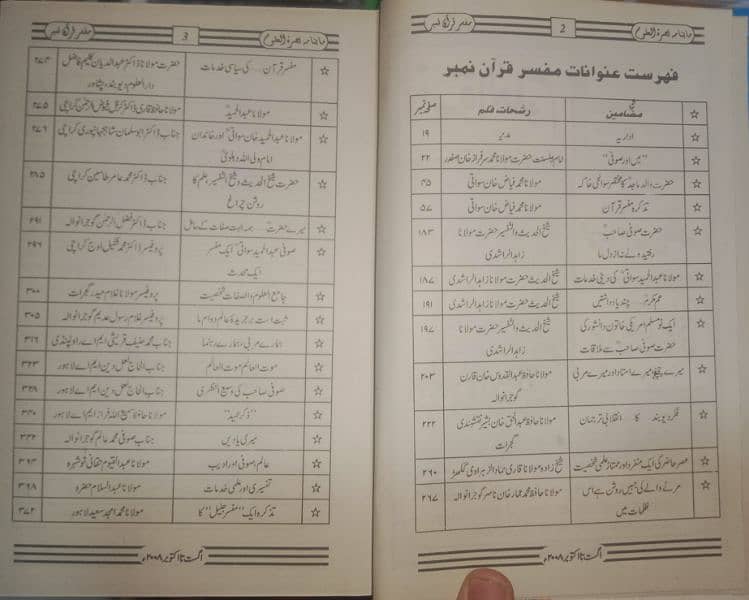 ماہنامہ نصرۃ العلوم
2
مفسر قرآن نمبر
فہرست عنوانات مفسر قرآن نمبر
☆ مضامین رشحات قلم صفحہ نمبر
☆ اداریہ مدیر ۱۹
☆ "میں اور صوفی" امام اہلسنت حضرت مولانا محمد سرفراز خان صفدر ۲۲
☆ حضرت والد ماجدؒ کا مختصر سوانحی خاکہ مولانا محمد فیاض خان سواتی ۴۵
☆ تذکرہ مفسر قرآن مولانا محمد فیاض خان سواتی ۵۷
☆ حضرت صوفی صاحبؒ شیخ الحدیث والتفسیر حضرت مولانا ۱۸۳
رفتید ولے نہ از دل ما زاہد الراشدی
☆ مولانا عبدالحمید سواتیؒ کی دینی خدمات شیخ الحدیث حضرت مولانا زاہد الراشدی ۱۸۷
☆ عم مکرمؒ ... چند یادداشتیں شیخ الحدیث حضرت مولانا زاہد الراشدی ۱۹۱
☆ ایک نو مسلم امریکی خاتون دانشور کی شیخ الحدیث والتفسیر حضرت مولانا ۱۹۷
حضرت صوفی صاحبؒ سے ملاقات زاہد الراشدی
☆ میرے چچا، میرے استاد اور میرے مربی مولانا حافظ عبدالقدوس خان قارن ۲۰۳
گوجرانوالہ
☆ فکر دیوبند کا انقلابی ترجمان مولانا حافظ عبدالحق خان بشیر نقشبندی ۲۲۲
گجرات
☆ عصر حاضر کی ایک منفرد اور ممتاز علمی شخصیت شیخ زادہ مولانا قاری حماد الزہراوی گکھڑ ۲۶۰
☆ مرنے والے کی جبیں روشن ہے اس مولانا حافظ محمد عمار خان ناصر گوجرانوالہ ۲۶۷
ظلمات میں
اگست تا اکتوبر ۲۰۰۸ء
ماہنامہ نصرۃ العلوم
3
مفسر قرآن نمبر
☆ مفسر قرآن ... کی سیاسی خدمات حضرت مولانا ڈاکٹر عبدالدیان کلیم فاضل ۲۷۳
دارالعلوم دیوبند، پشاور
☆ مولانا عبدالحمیدؒ مولانا حافظ قاری ڈاکٹر کرنل فیوض الرحمن کراچی ۲۷۵
☆ مولانا عبدالحمید خان سواتیؒ اور خاندان جناب ڈاکٹر ابوسلمان شاہجہانپوری کراچی ۲۷۶
امام ولی اللہ دہلویؒ
☆ حضرت شیخ الحدیث و شیخ التفسیر، علم کا جناب ڈاکٹر محمد عامر طاسین کراچی ۲۸۵
روشن چراغ
☆ میرے حضرتؒ ہمہ جہت صفات کے حامل جناب ڈاکٹر فضل الرحمن گوجرانوالہ ۲۹۱
☆ صوفی عبدالحمید سواتیؒ ایک مفسر پروفیسر ڈاکٹر محمد شکیل اوج کراچی ۲۹۶
ایک محدث
☆ جامع العلوم والصفات شخصیت پروفیسر مولانا غلام حیدر گجرات ۳۰۰
☆ ثبت است بر جریدۂ عالم دوام ما پروفیسر غلام رسول عدیم گوجرانوالہ ۳۰۵
☆ ہمارے مربی، ہمارے رہنما جناب محمد حنیف قریشی ایم اے، راولپنڈی ۳۱۶
☆ موت العالم موت العالم جناب الحاج لعل دین ایم اے لاہور ۳۲۳
☆ صوفی صاحب کی وسیع النظری جناب الحاج لعل دین ایم اے لاہور ۳۲۸
☆ "ذکر حمید" مولانا حافظ سمیع اللہ فراز ایم اے لاہور ۳۳۰
☆ میری یادیں جناب صوفی محمد عالم گوجرانوالہ ۳۳۲
☆ عالم صوفی اور ادیب مولانا عبدالقیوم حقانی نوشہرہ ۳۶۳
☆ تفسیری اور علمی خدمات مولانا عبدالسلام حضرو ۳۶۸
☆ تذکرہ ایک "مفسر جلیل" کا مولانا محمد امجد سعید لاہور ۳۷۲
اگست تا اکتوبر ۲۰۰۸ء